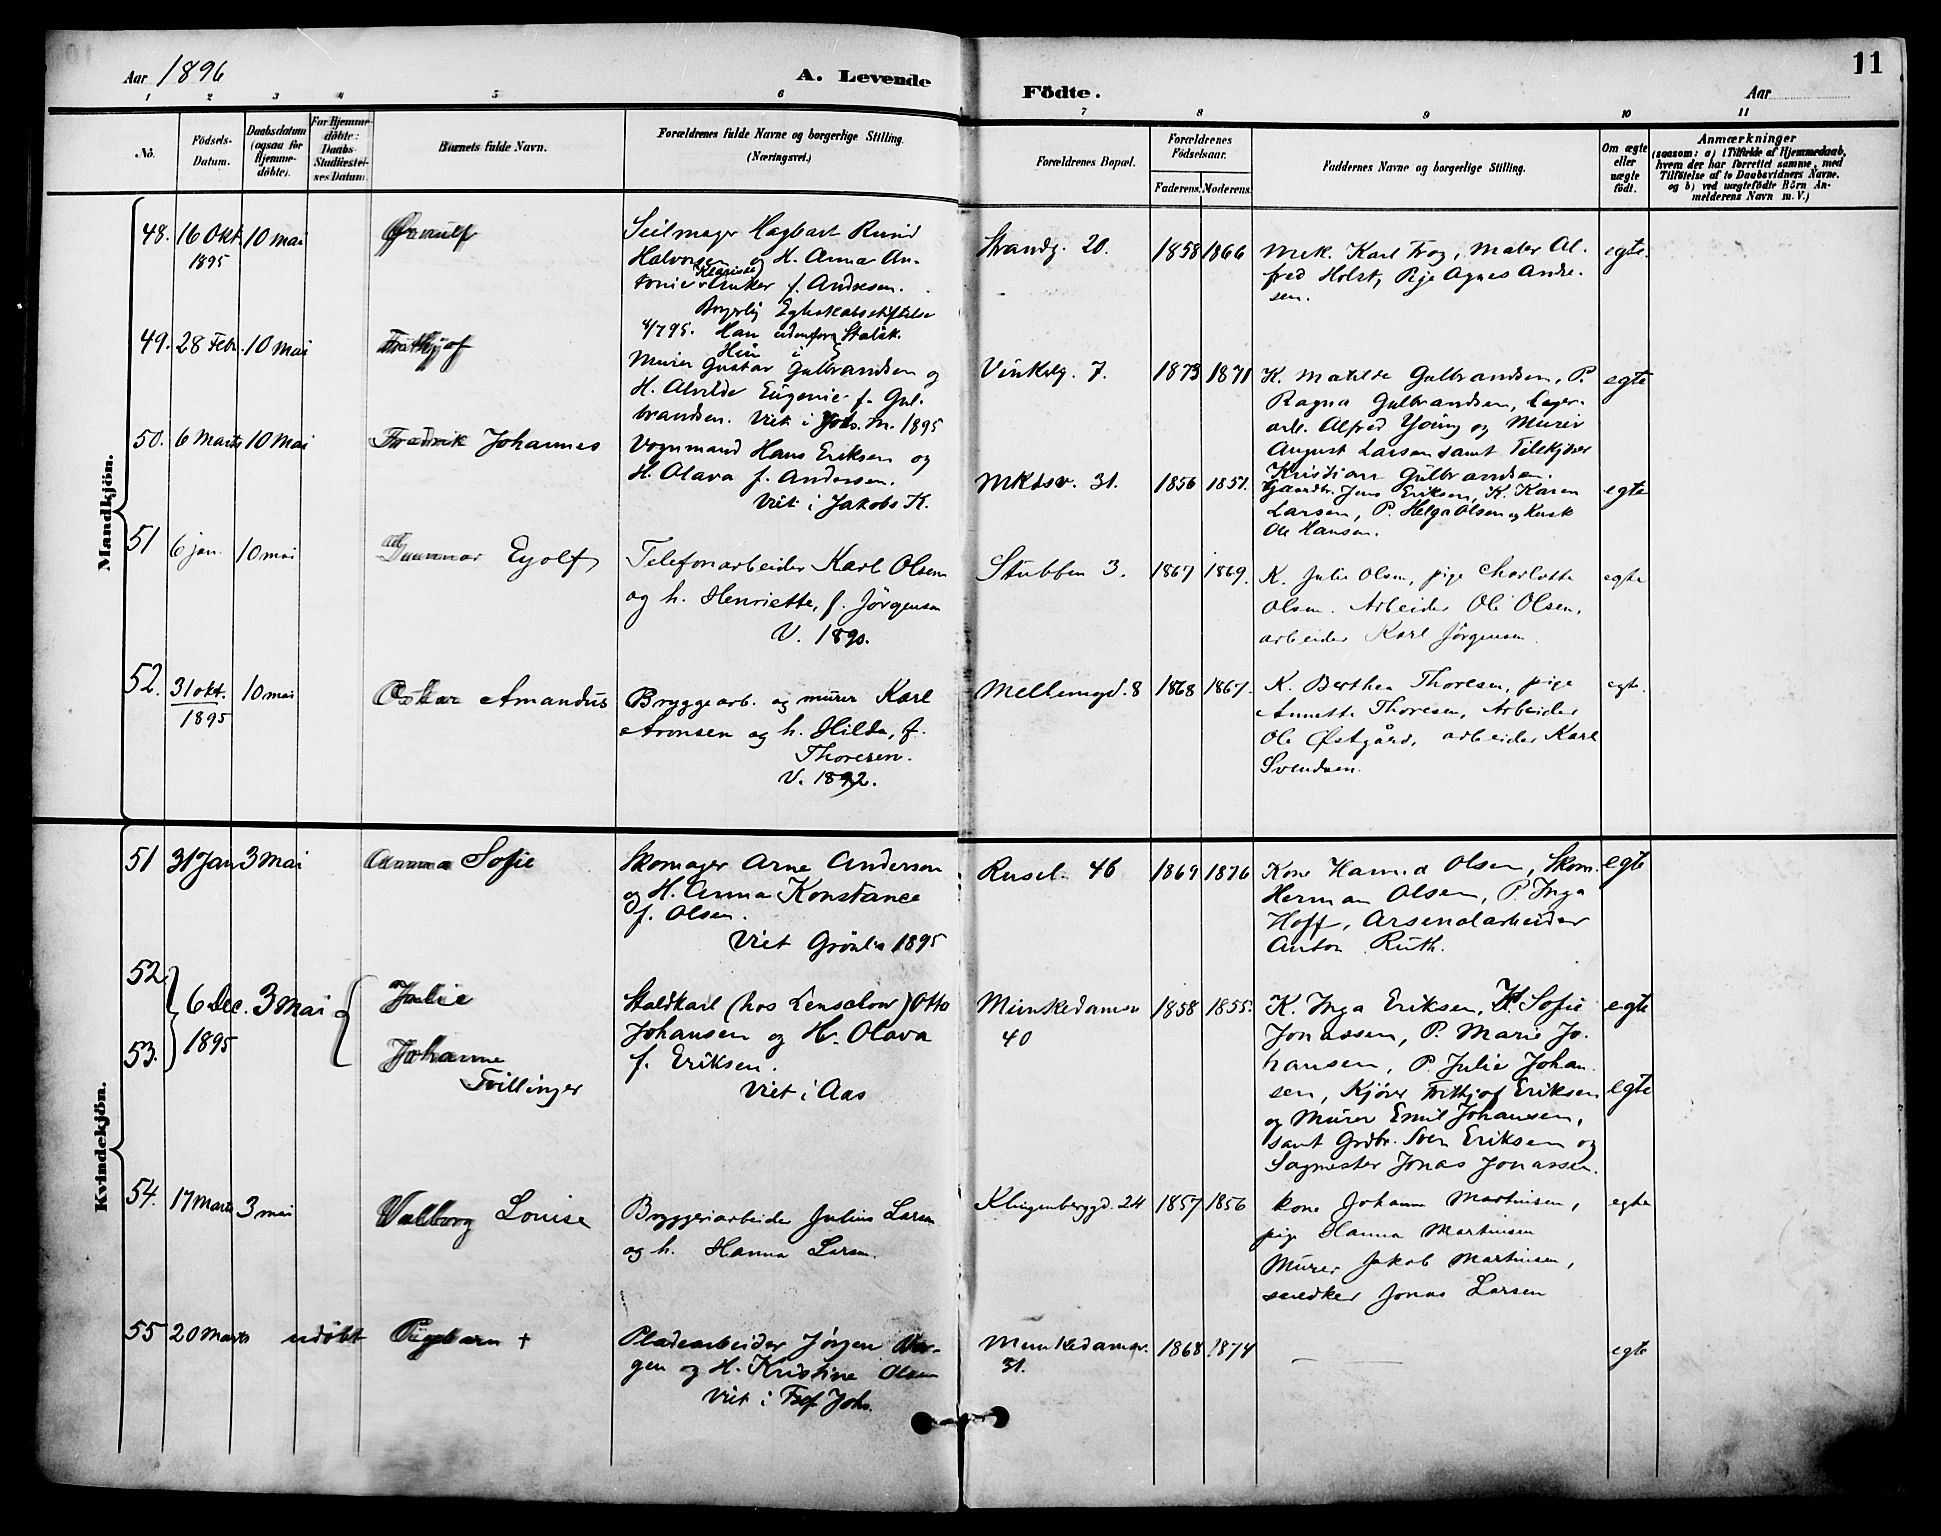 11
Aar 1896
A. Levende
Födte.
Aar
1 2 3 4 5 6 7 8 9 10 11
No.
Födsels-
Datum.
Daabsdatum
(ogsaa for
Hjemme-
döbte).
For Hjemme-
döbte:
Daabs-
Stadfæstel-
ses Datum.
Barnets fulde Navn.
Forældrenes fulde Navne og borgerlige Stilling.
(Næringsvei.)
Forældrenes Bopæl.
Forældrenes
Födselsaar.
Faderens. Moderens.
Faddernes Navne og borgerlige Stilling.
Om ægte
eller
uægte
födt.
Anmærkninger
(saasom: a) i Tilfælde af Hjemmedaab,
hvem der har forrettet samme, med
Tilföielse af to Daabsvidners Navne.
og b) ved uægtefödte Börn An-
melderens Navn m. V.)
Mandkjön.
48. 16 Okt 10 mai
1895
Ørnulf
Seilmager Hagbart
Halvorsen og H. Anna An-
tonie Klarisse Anker f. Andresen.
Borgerlig Egteskabsstiftelse
4/7 95. Han udenfor Statsk.
Hun i
Strandg. 20. 1858 1866
Mek. Karl Frog, Maler Al-
fred Holst, Pige Agnes Andre-
sen.
egte.
49. 28 Febr. 10 mai
Frithjof
Murer Gustav Gulbrandsen og
H. Alvilde Eugenie f. Gul-
brandsen. Viet i Johs. M. 1895
Vinkelg. 7. 1873 1871
K. Matilde Gulbrandsen, P.
Ragna Gulbrandsen, Lager-
arb. Alfred Young og Murer
August Larsen samt Tilskjærer
Kristian Gulbrandsen.
egte
50. 6 Marts 10 Mai
Fredrik Johannes
Vognmand Hans Eriksen og
H. Olava f. Andersen.
Viet i Jakobs K.
Mkdsv. 31. 1856 1851.
Gaardbr. Jens Eriksen, K. Karen
Larsen, P. Helga Olsen og Kusk
Ole Hansen.
egte
51 6 jan. 10 mai
Gunnar Eyolf
Telefonarbeider Karl Olsen
og h. Henriette, f. Jörgensen
V. 1890.
Stubben 3. 1867 1869.
K. Julie Olsen, pige Charlotte
Olsen. Arbeider Ole Olsen,
arbeider Karl Jørgensen.
egte
52. 31 okt. 10 mai
1895
Oskar Amandus
Bryggearb. og murer Karl
Aronsen og h. Hilda, f.
Thoresen.
V. 1892.
Mellemgd. 8 1868 1867.
K. Berthea Thoresen, pige
Annette Thoresen, Arbeider
Ole Østgård, arbeider Karl
Svendsen.
egte.
Kvindekjön.
51 31 Jan 3 Mai
Anna Sofie
Skomager Arne Anderson
og H. Anna Konstance
f. Olsen.
Viet Grönl. 1895
Rusel. 46 1869 1876
Kone Hanna Olsen, Skom.
Herman Olsen, P. Inga
Hoff, Arsenalarbeider
Anton Ruth.
egte
52
53.
6 Dec. 3 Mai
1895
Julie
Johanne
Tvillinger
Staldkarl (hos Lenschow) Otto
Johansen og H. Olava
f. Eriksen.
Viet i Aas
Munkedamsv
40
1858 1855.
K. Inga Eriksen, K. Sofie
Jonassen, P. Marie Jo-
hansen, P. Julie Johan-
sen, Kjører Frithjof Eriksen
og Murer Emil Johansen,
samt Grdbr. Sven Eriksen og
Sagmester Jonas Jonassen.
egte
egte
54. 17 Marts 3 mai
Valborg Louise
Bryggeriarbeider Julius Larsen
og h. Hanna Larsen.
Klingenberggd. 24 1857 1856
kone Johann Martinsen,
pige Hanna Martinsen
Murer Jakob Martinsen,
snedker Jonas Larsen
egte
55 20 Marts udøbt
Pigebarn †
Pladearbeider Jørgen
gen og H. Kristine Olsen
Viet i Tref. Joh.
Munkedamsv.
31.
1868 1874
egte